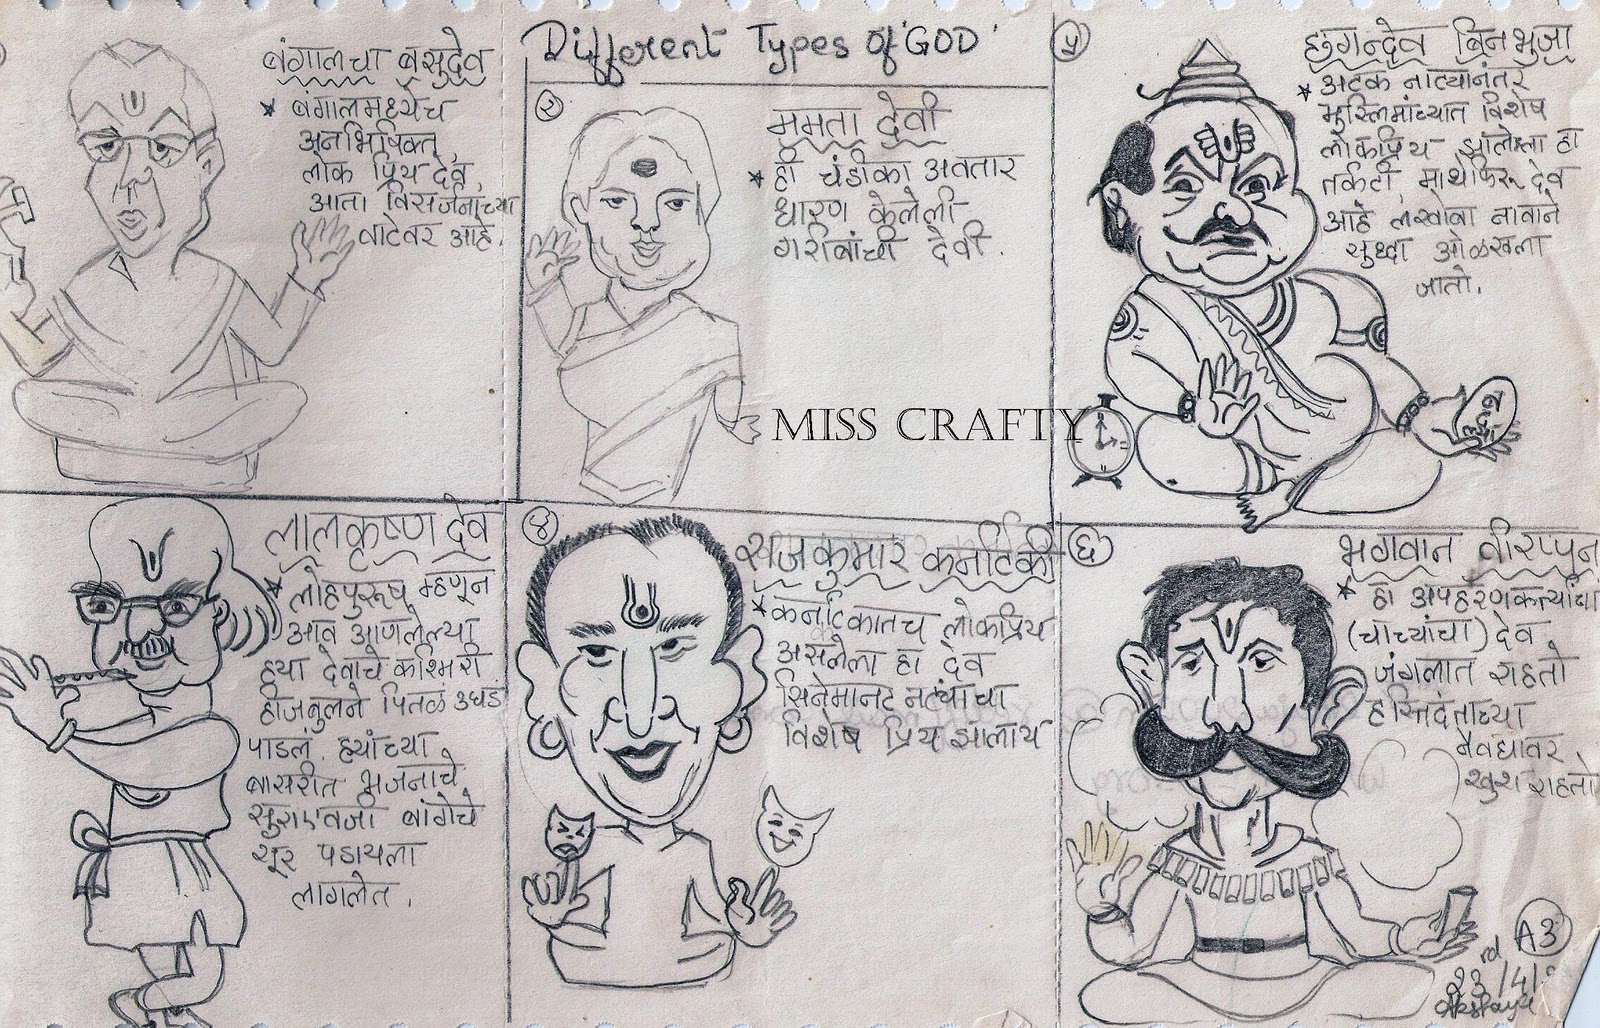 बंगालचा बसुदेव
* बंगालमध्येच
अनभिषिक्त,
लोक प्रिय देव,
आता विसर्जनाच्या
वाटेवर आहे.
Different Types of 'GOD'
२
ममता देवी
* ही चंडीका अवतार
धारण केलेली
गरीबांची देवी.
५
छगनदेव बिनभुजा
* अटक नाट्यानंतर
मुस्लिमांच्यात विशेष
लोकप्रिय झालेला हा
तर्कटी, माथेफिरू देव
आहे लखोबा नावाने
सुध्दा ओळखला
जातो.
MISS CRAFTY
लालकृष्ण देव
* लोहपुरूष म्हणून
आव आणलेल्या
हया देवाचे कश्मिरी
हिजबुलने पितळं उघडं
पाडलं. हयांच्या
बासरीत भजनाचे
सुराऐवजी बांगेचे
सूर पडायला
लागलेत.
४
राजकुमार कर्नाटकी
* कर्नाटकातच लोकप्रिय
असलेला हा देव
सिनेमानट नट्यांचा
विशेष प्रिय झालाय
६
भगवान वीराप्पन
* हा अपहरणकर्त्यांचा
(चोच्यांचा) देव
जंगलात राहतो
हस्तिदंताच्या
नैवद्यावर
खुश राहतो
A3
23rd/4/